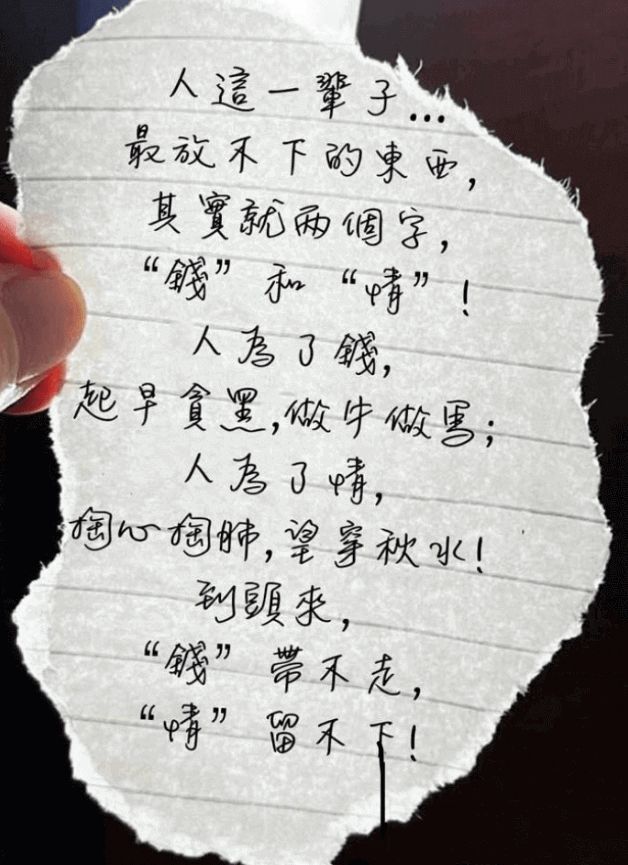 人這一輩子...
最放不下的東西,
其實就两個字,
“錢”和“情”!
人為了錢,
起早貪黑,做牛做馬;
人為了情,
掏心掏肺,望穿秋水!
到頭來,
“錢”帶不走,
“情”留不下!